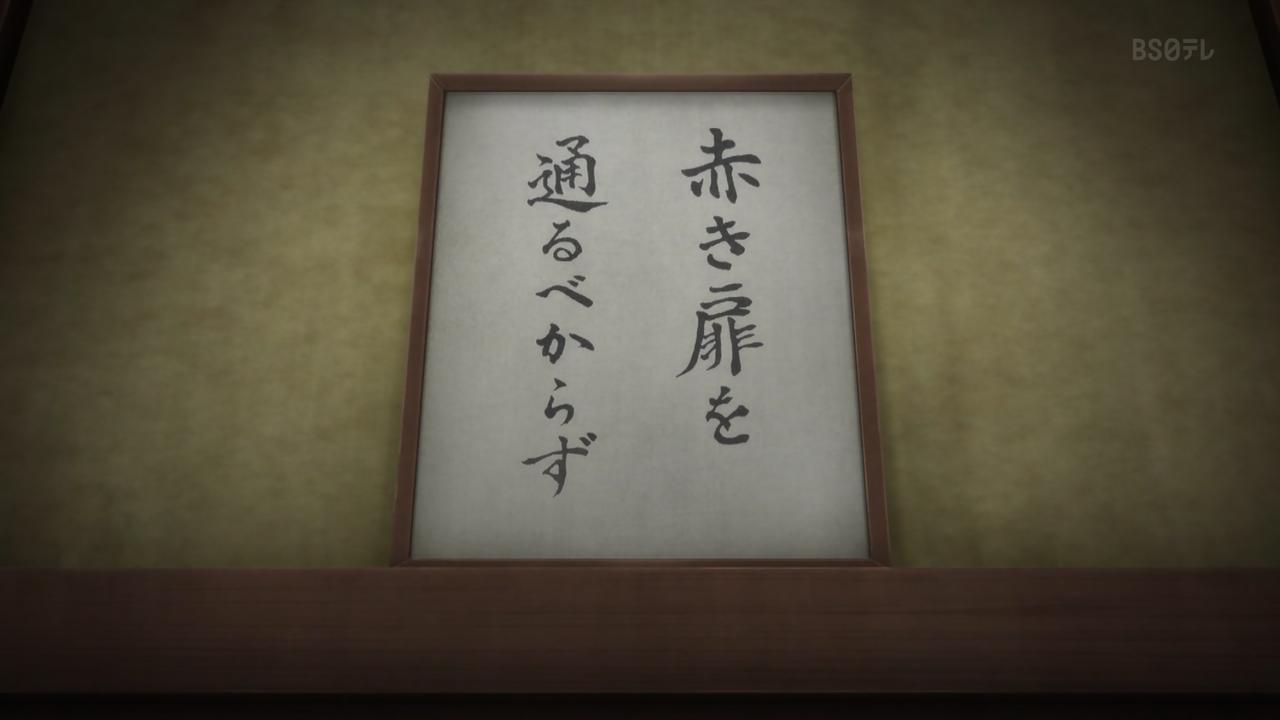 赤き扉を
通るべからず
BS日テレ